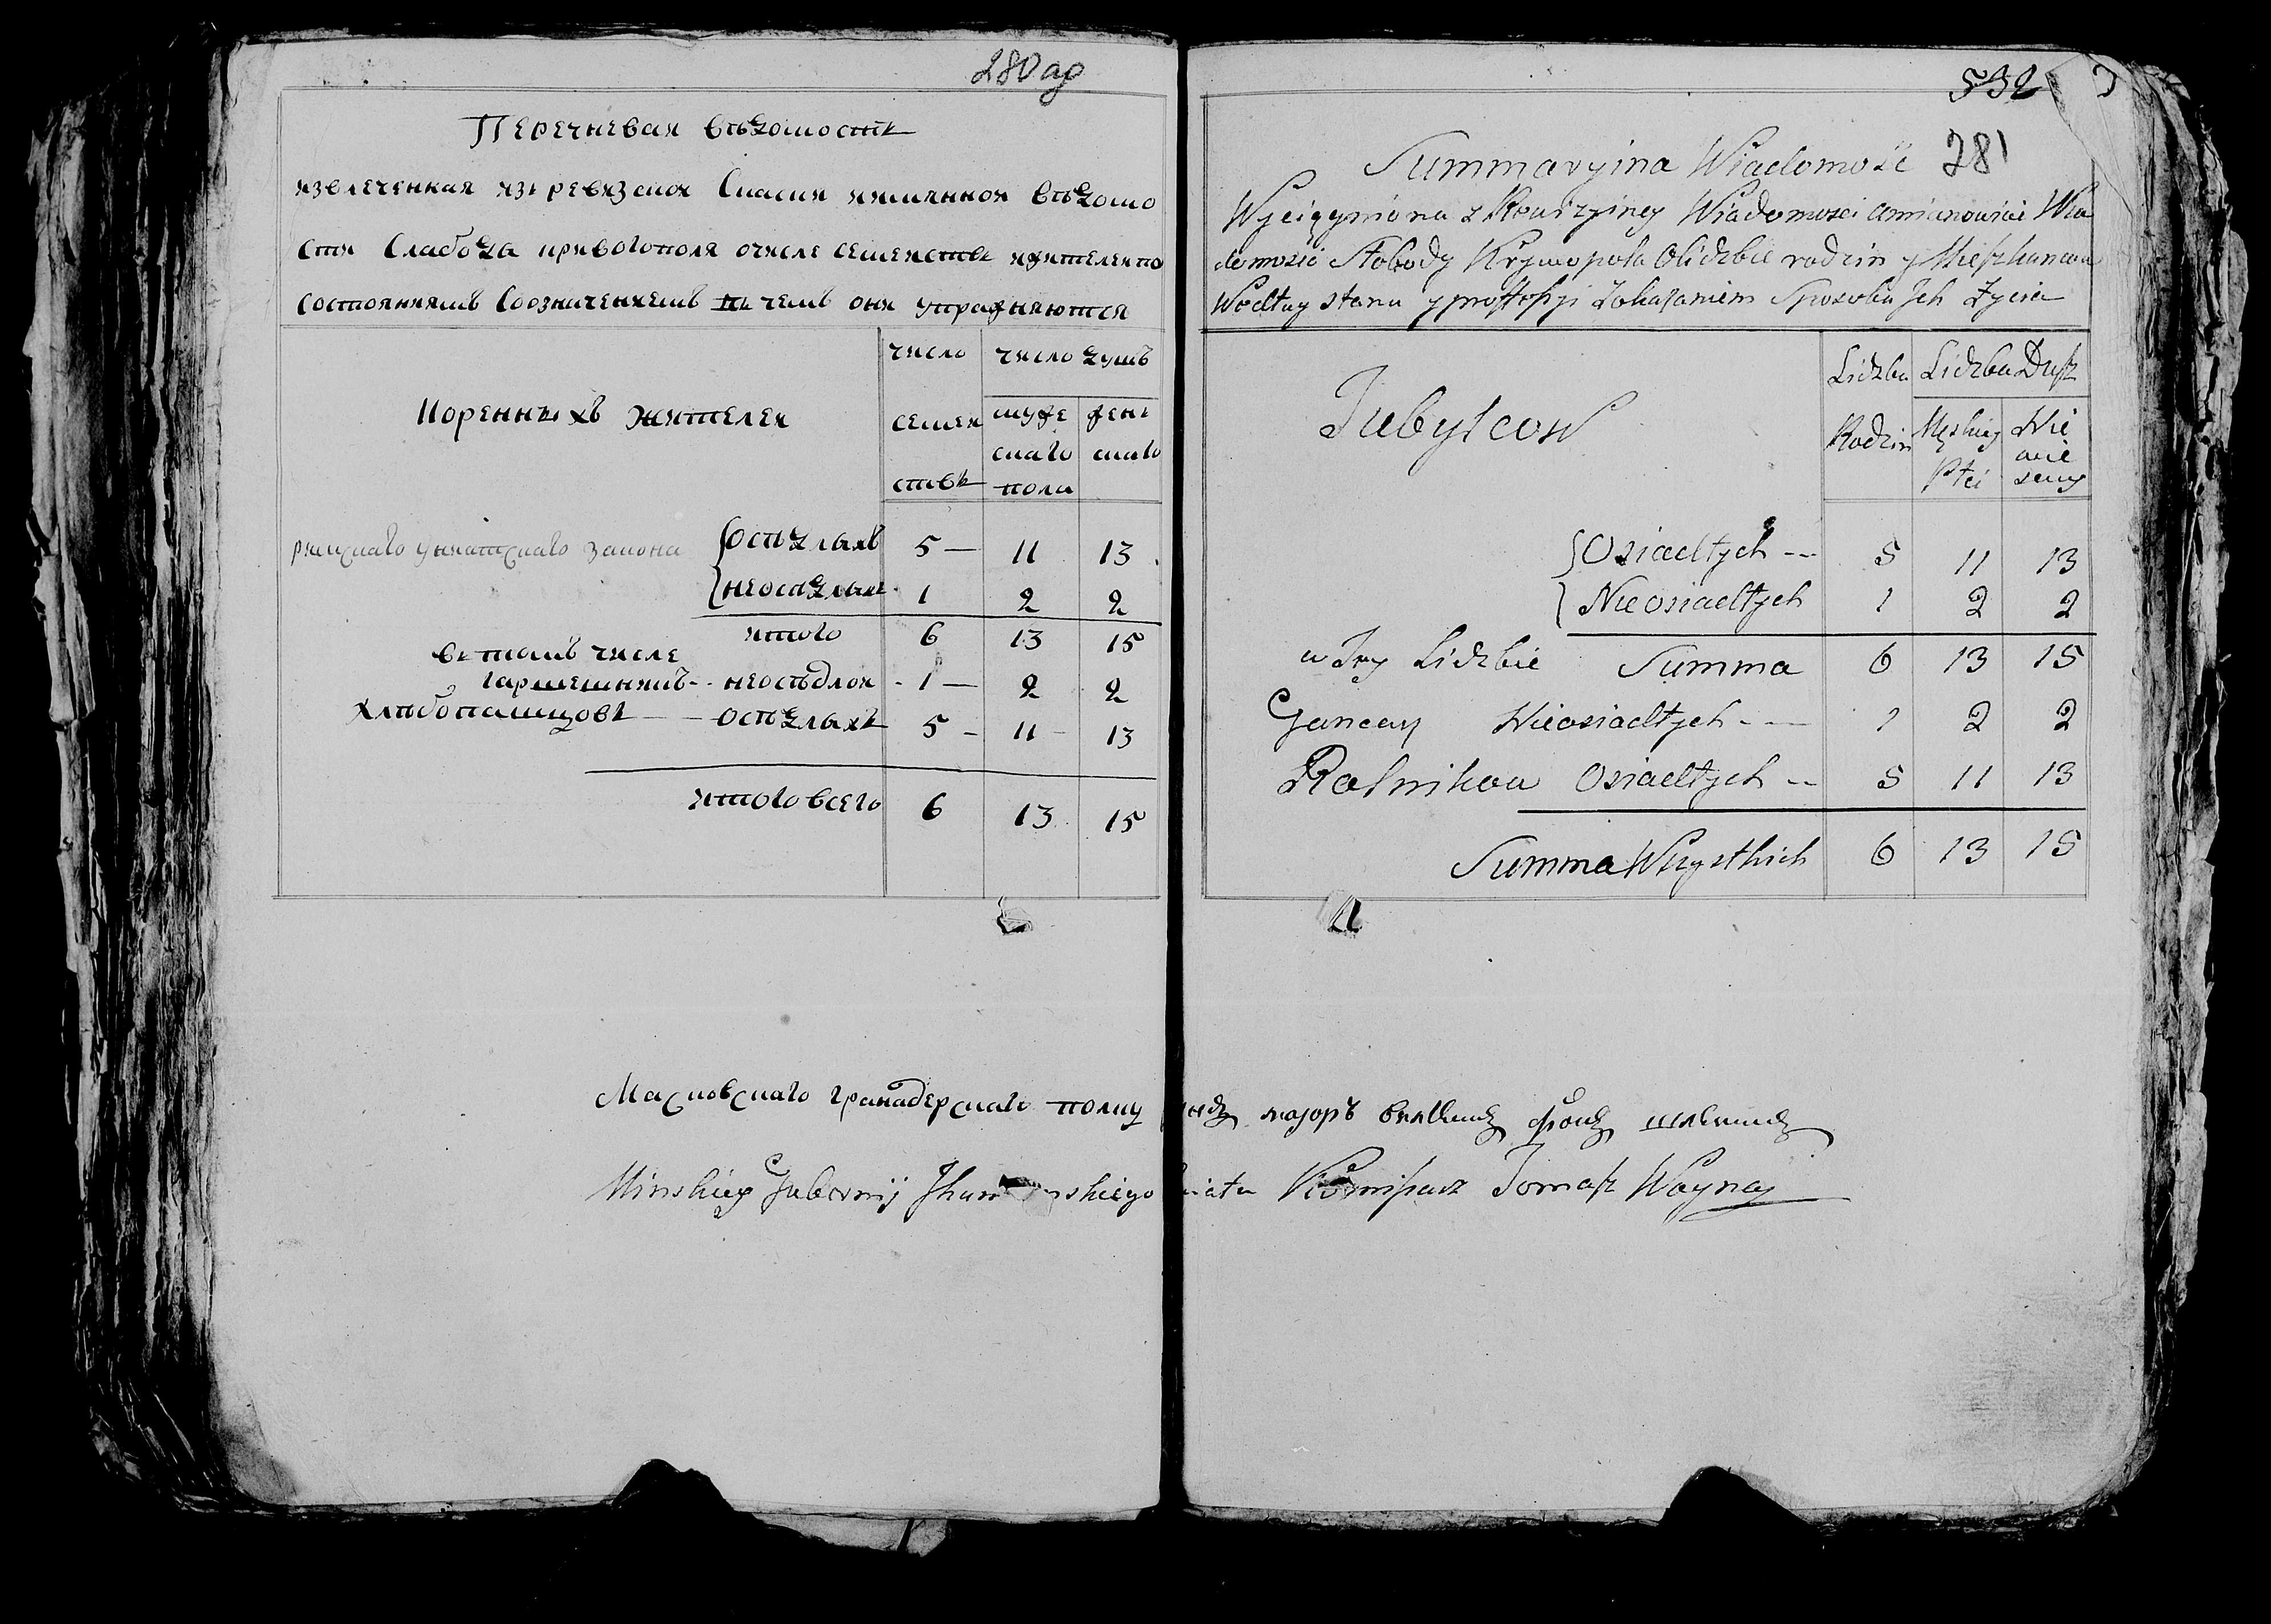 280 об
Перечневая вѣдомость
извлеченная изъ ревизской Скаски имянной вѣдомо
сти Слабода кривополя очисле семействъ ижителей по
состояниямъ Сознаниемъ въ чемъ они упражняются
Коренныхъ жителей
число
семей
ствъ
число душъ
муже
скаго
пола
жен
скаго
римскаго униатскаго закона
Осѣдлыхъ 5 — 11 13
неосѣдлыхъ 1 2 2
итого 6 13 15
въ томъ числе
неосѣдлой 1 — 2 2
хлѣбопашцовъ — осѣдлыхъ 5 — 11 — 13
итого всего 6 13 15
532
281
Summaryina Wiadomosc
Wyciągniona z Rewizyiney Wiadomosci Wia
domosci Słobody Krywopola Olidzbie rodzin y Mieszkancow
Według stanu y professyi Zokazaniem Sposobu Jch Zycia
Lidzba
Rodzin
Lidzba Dusz
Męskiey
Płci
Nie
wie
sciey
Osiadłych -- 5 11 13
Nieosiadłych 1 2 2
w Tey Lidzbie Summa 6 13 15
Gancary Nieosiadłych -- 1 2 2
Rolnikow Osiadłych -- 5 11 13
Summa Wszystkich 6 13 15
Московскаго гранадерскаго полку маіоръ фонъ
Minskiey Gubernij Jhumenskiego Komisarz Tomasz Woyna